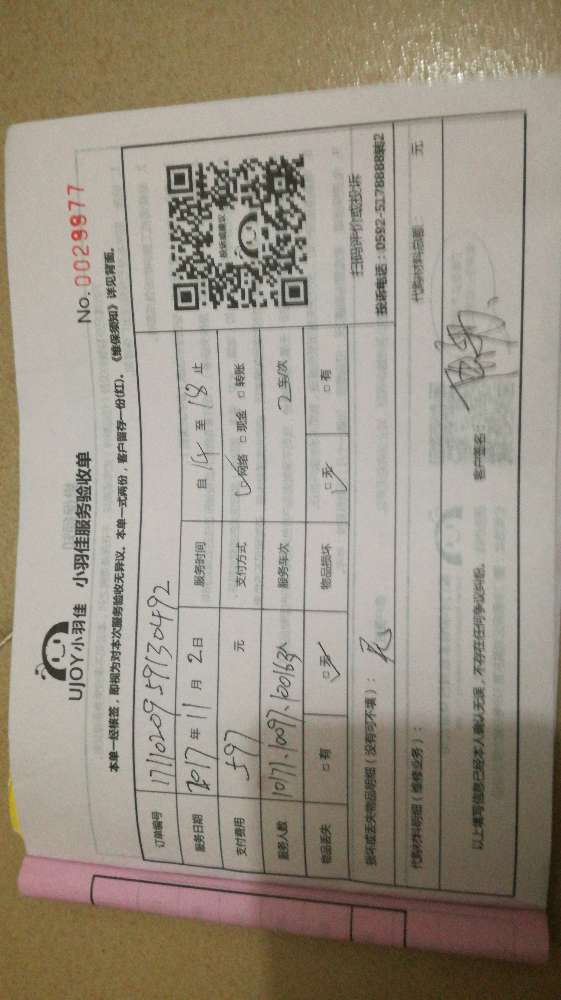 UJOY小羽佳 小羽佳服务验收单
No. 0029977
本单一经核签，即视为对本次服务验收无异议。本单一式两份，客户留存一份(红)。《维保须知》详见背面。
订单编号 1711020959130492
服务日期 2017 年 11 月 2 日 服务时间 自 14 至 18 止
支付费用 597 元 支付方式 ☑网络 □现金 □转账
服务人数 10171、10097、10016 服务车次 2 车/次
物品丢失 □有 ☑无 物品损坏 ☑无 □有
投诉或建议
扫码评价或投诉
投诉电话：0592-5178888转2
损坏或丢失物品明细（没有可不填）： 无
代购材料明细（维修业务）： 代购材料总额： 元
以上填写信息已经本人确认无误，不存在任何争议纠纷。 客户签名：